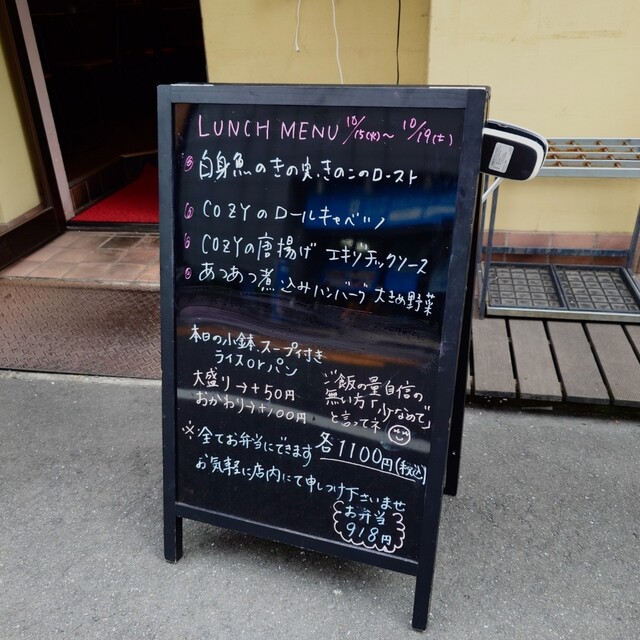 LUNCH MENU 10/15(火)～10/19(土)
白身魚のきのきのこのロースト
COZYのロールキャベツ
COZYの唐揚げ エキゾチックソース
あつあつ煮込みハンバーグ 大きめ野菜
本日の小鉢、スープ付き
ライスorパン
大盛り→+50円
おかわり→+100円
ご飯の量自信の
無い方「少なめで」
と言ってネ
各1100円(税込)
※全てお弁当にできます
お気軽に店内にて申しつけ下さいませ
お弁当
918円